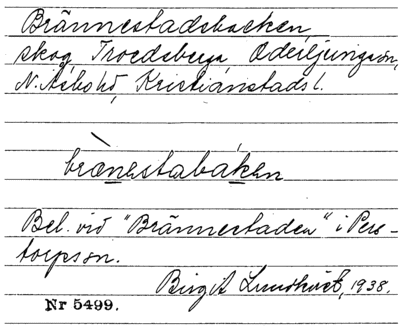 Brännestadsbacken
skog Troedsberga Oderljungasn,
N. Åsbohd, Kristianstads l.
brænestabaken
Bel. vid "Brännestaden" i Pers-
torpssn.
Birgit Lundkvist, 1938.
Nr 5499.